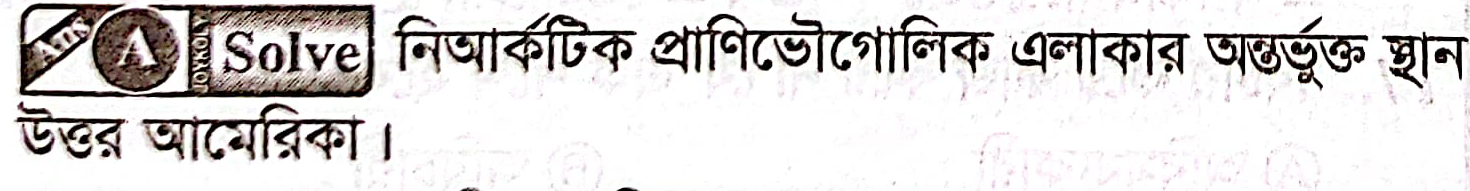 Ans A JOYKOLY Solve নিআর্কটিক প্রাণিভৌগোলিক এলাকার অন্তর্ভুক্ত স্থান
উত্তর আমেরিকা।